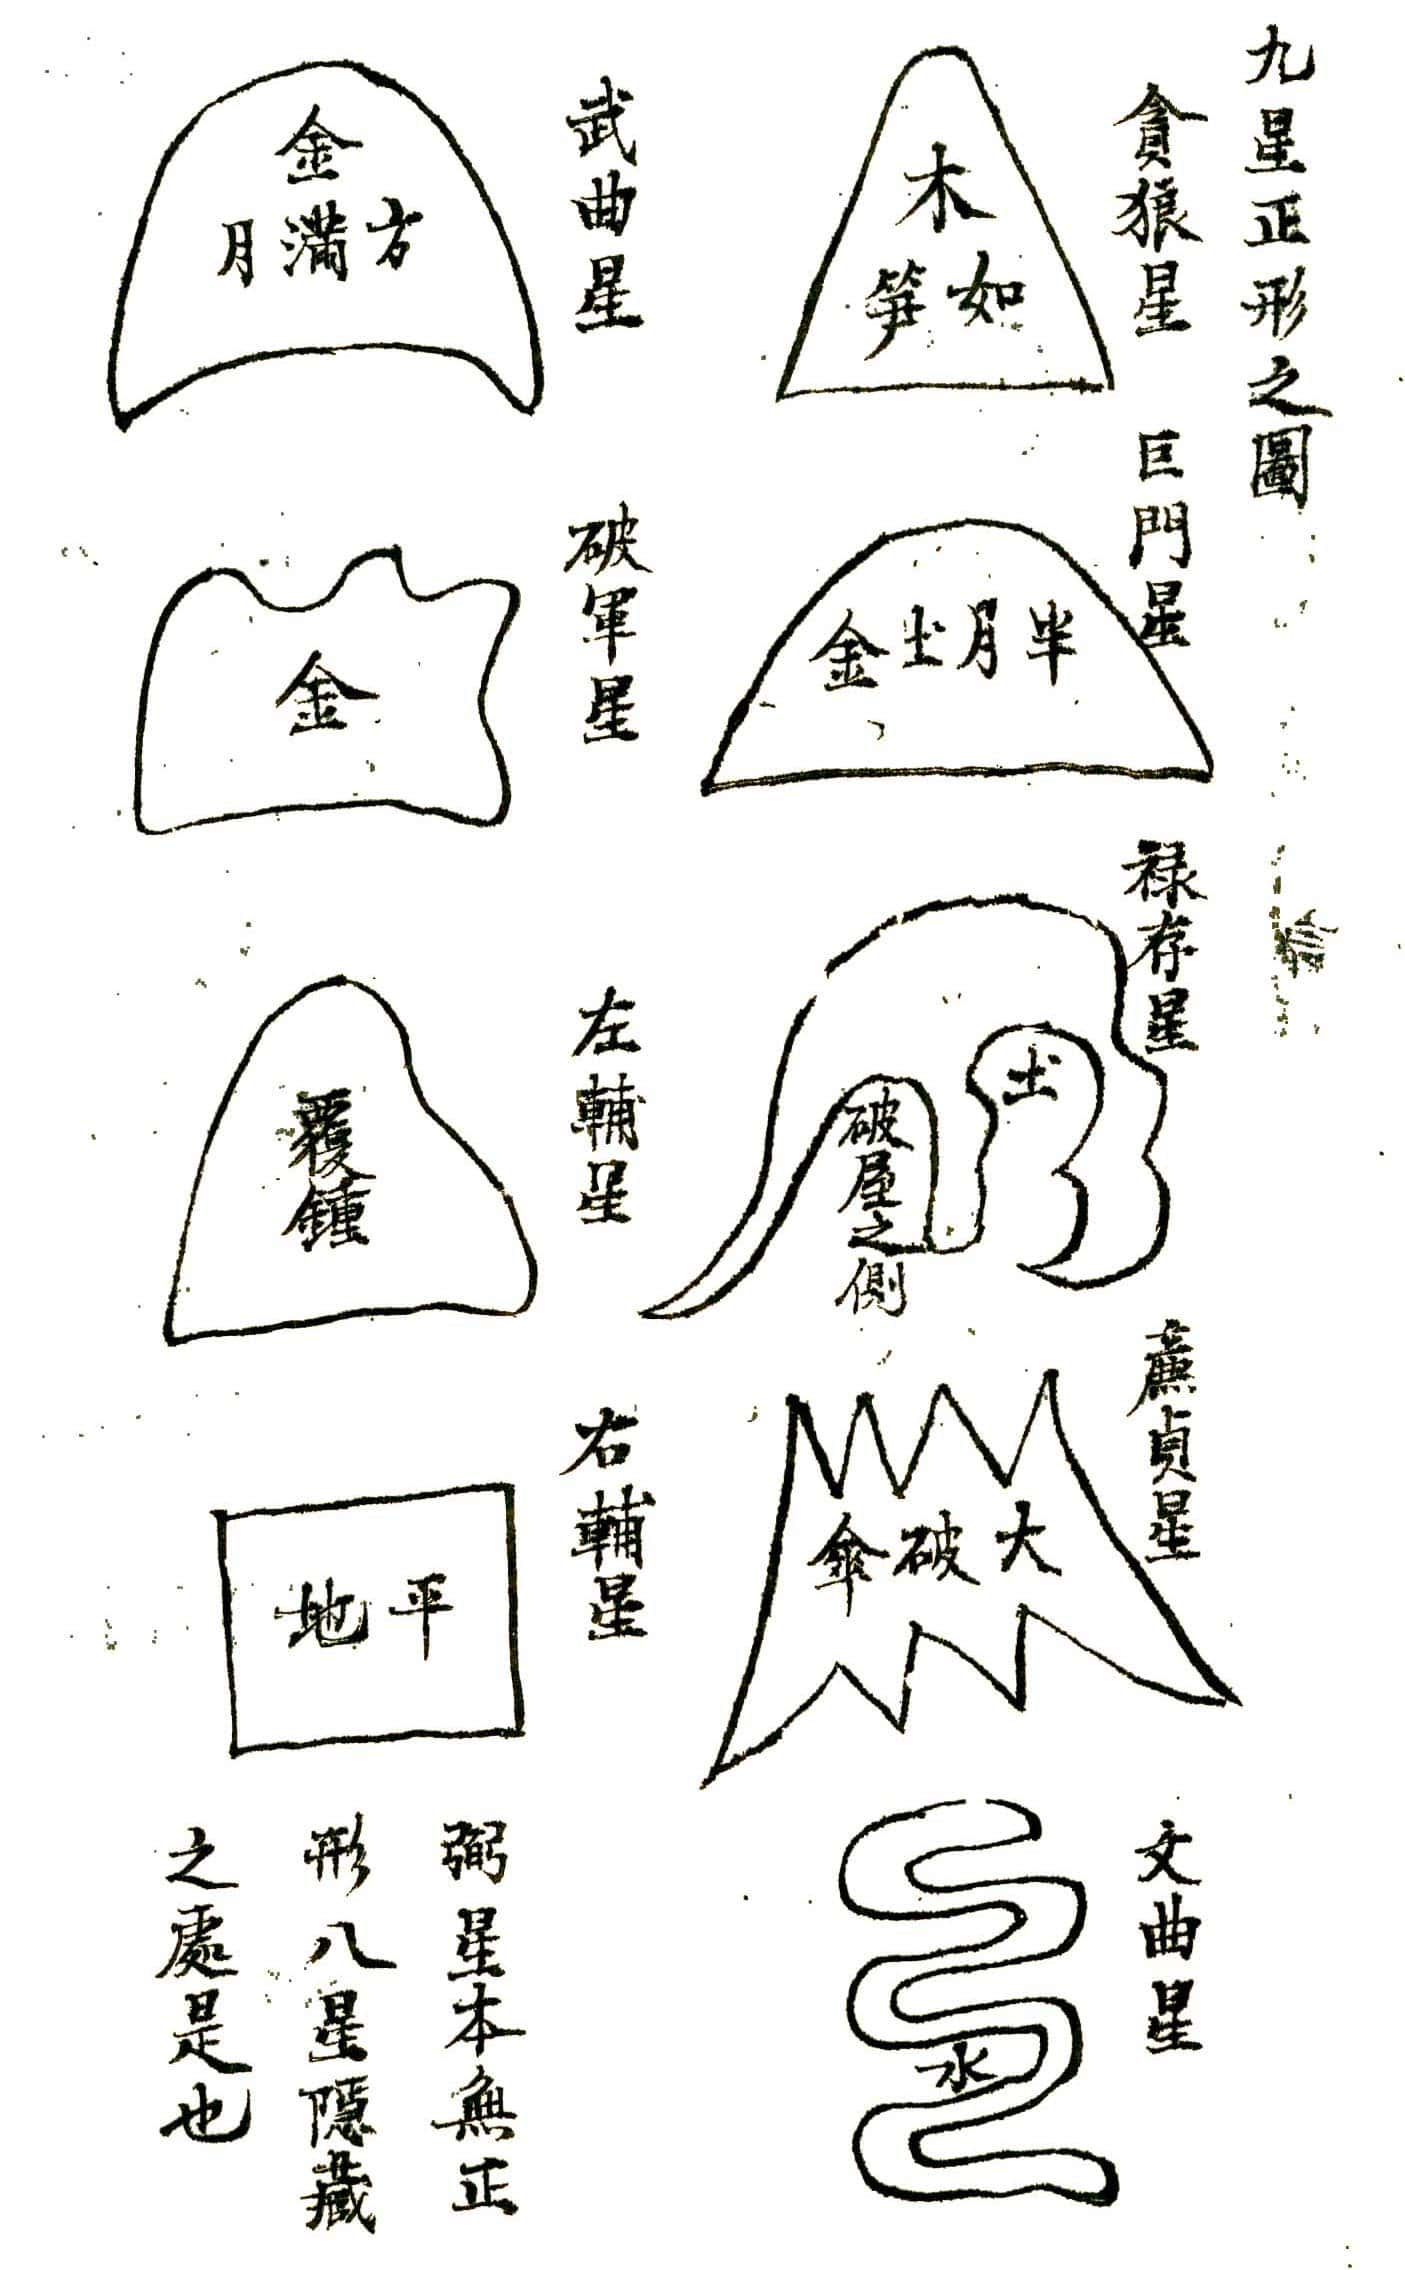 九星正形之圖
貪狼星
木
如笋
巨門星
半月土金
禄存星
土
破屋之側
薕貞星
大破傘
文曲星
水
武曲星
金
方滿月
破軍星
金
左輔星
覆鍾
右輔星
平地
弼星本無正
形八星隱藏
之處是也